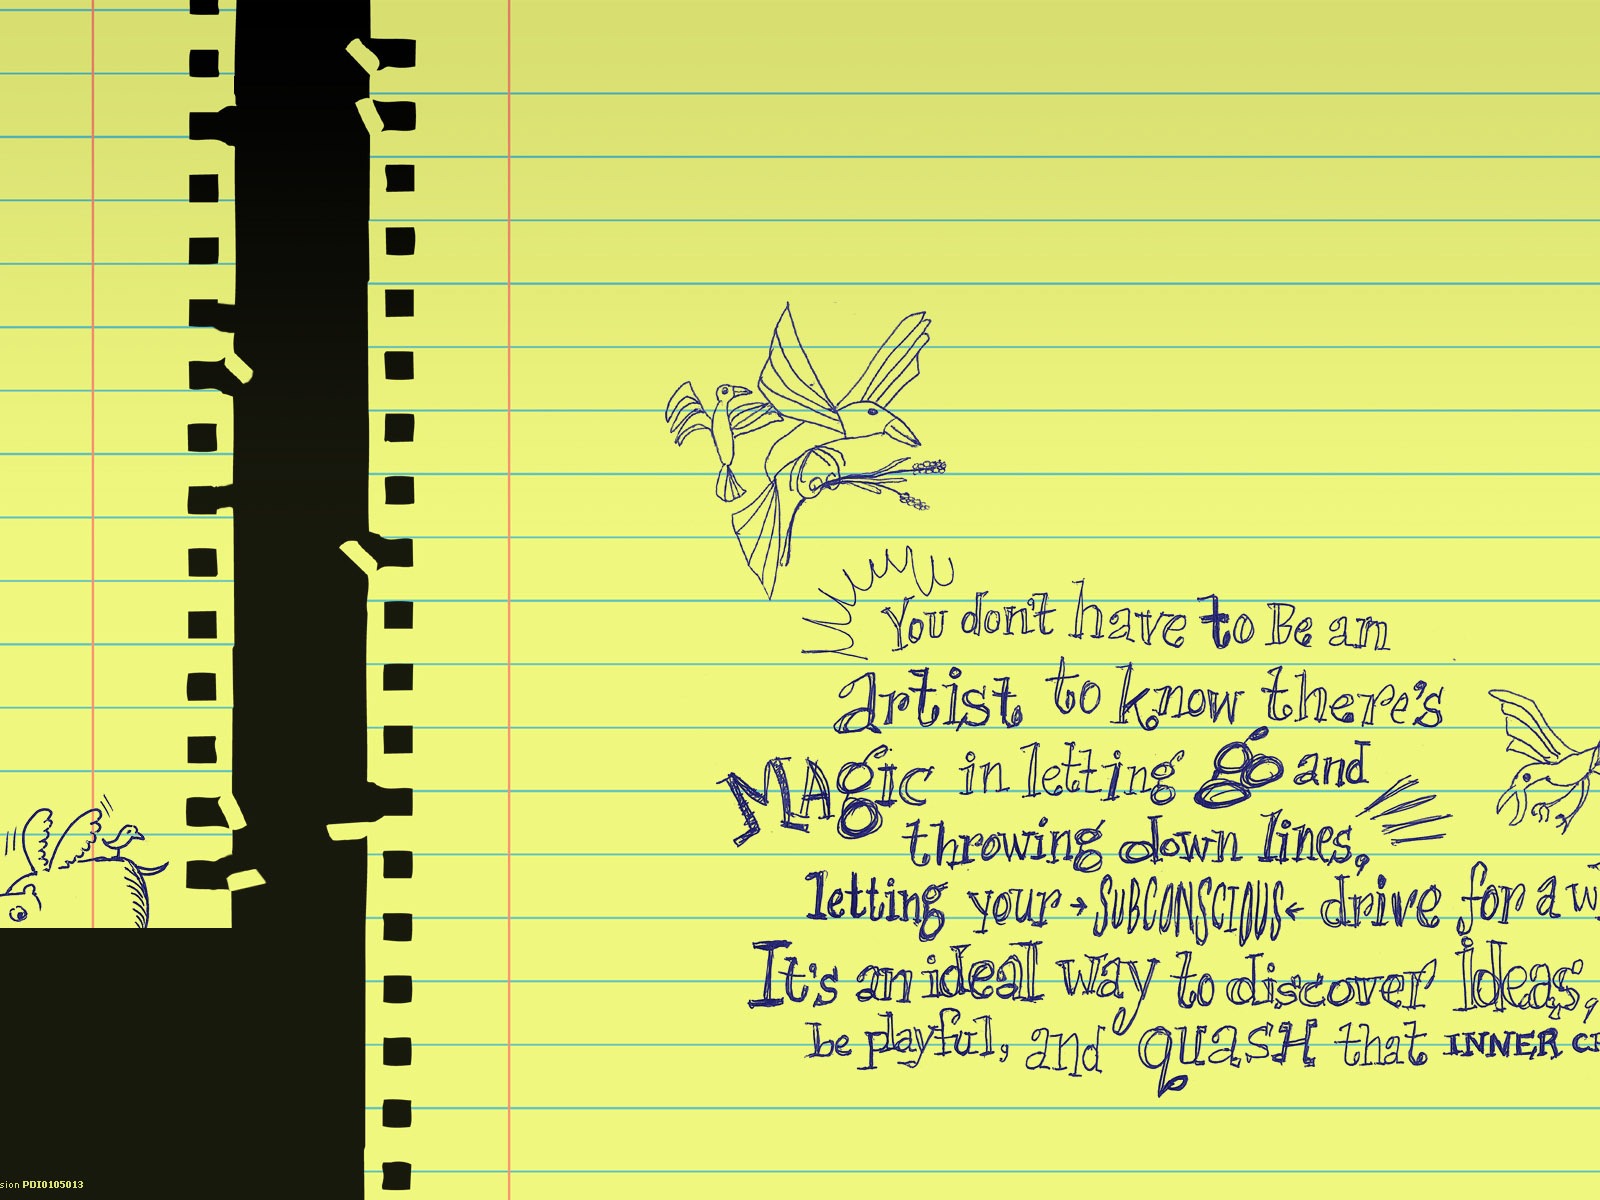 You don't have to Be an
artist to know there's
MAgic in letting go and
throwing down lines,
letting your → SUBCONSCIOUS ← drive for a
It's an ideal way to discover ideas,
be playful, and quasH that INNER
sion PDI0105013